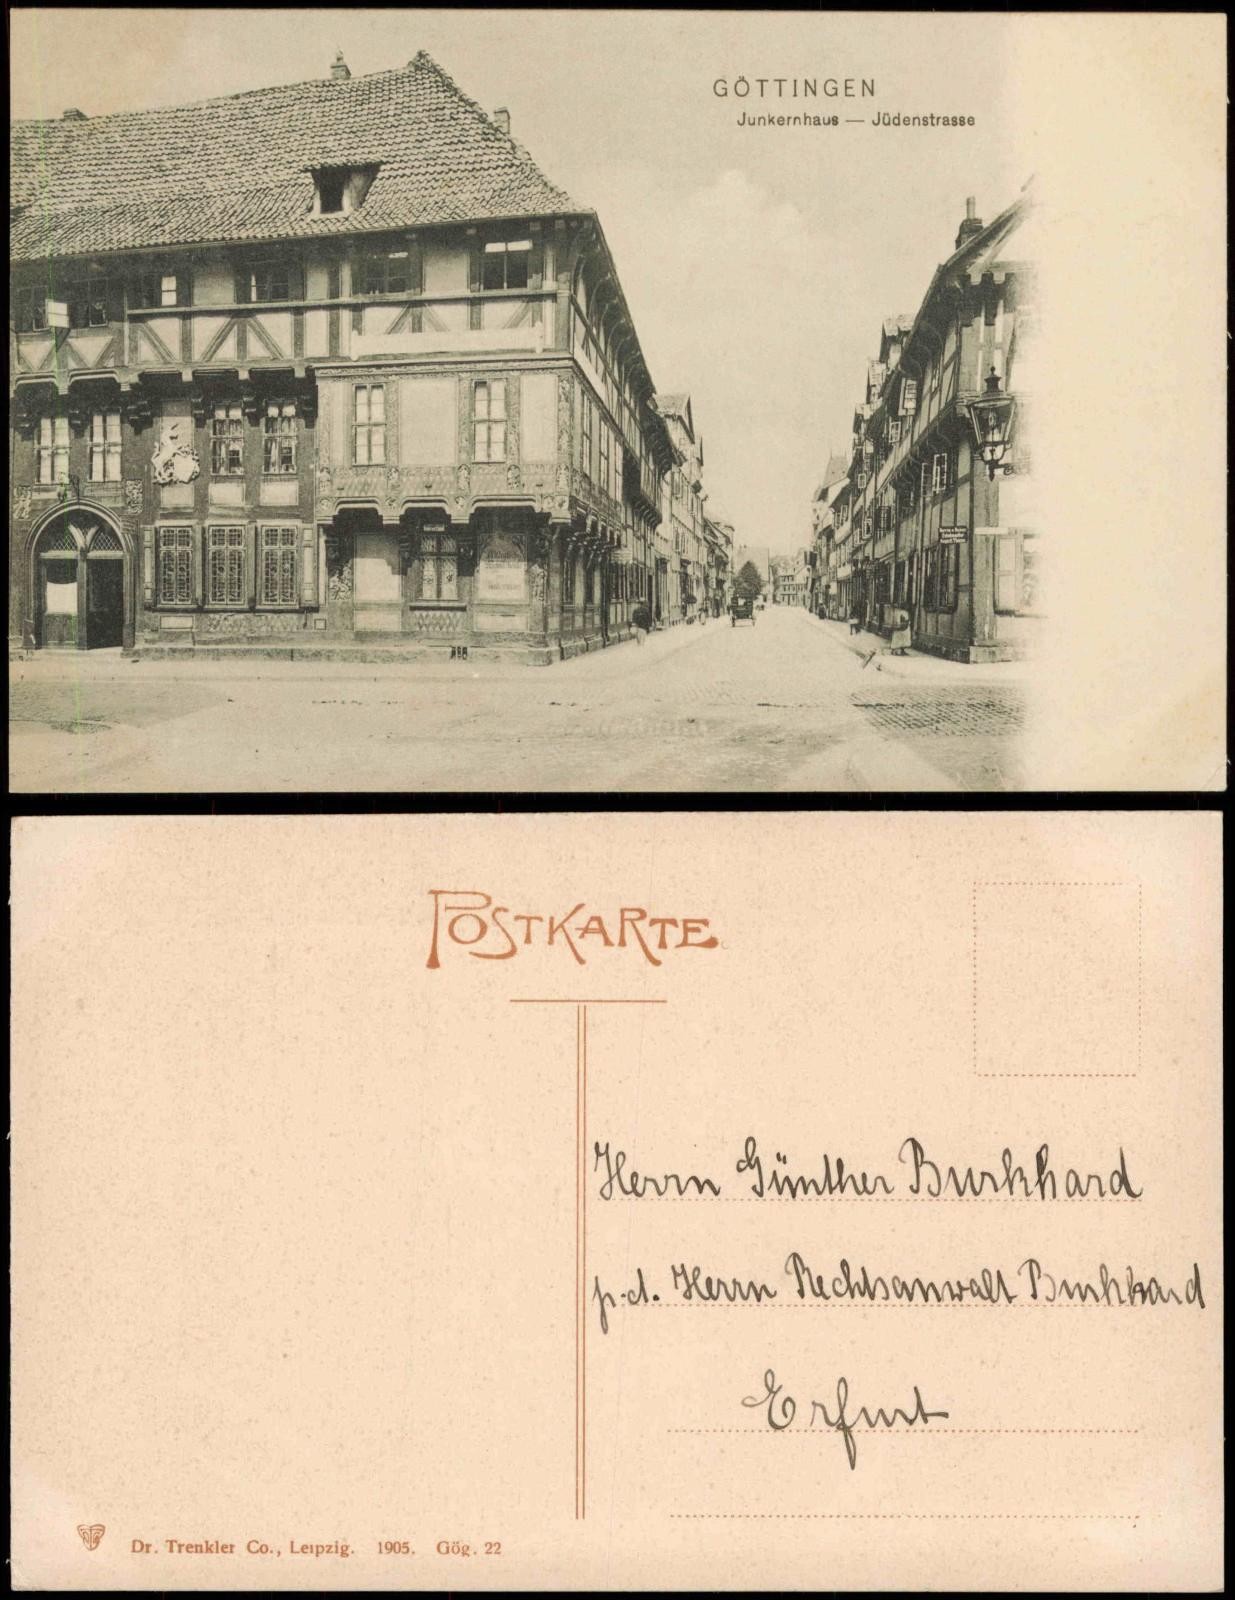 GÖTTINGEN
Junkernhaus — Jüdenstrasse
POSTKARTE
Herrn Günther Burkhard
p. d. Herrn Rechtsanwalt Burkhard
Erfurt
Dr. Trenkler Co., Leipzig. 1905. Gög. 22